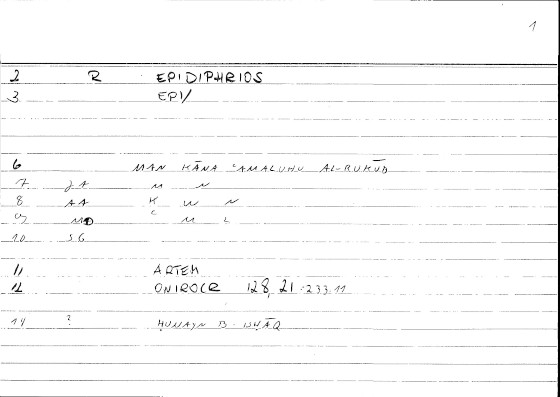 1
2 R EPIDIPHRIOS
3 EPI/
6 MAN KĀNA ʿAMALUHU AL-RUKŪD
7 JA M N
8 AA K W N
9 MD ʿ M L
10 SG
11 ARTEM
12 ONIROCR 128,21:233.11
14 ? ḤUNAYN B. ISḤĀQ